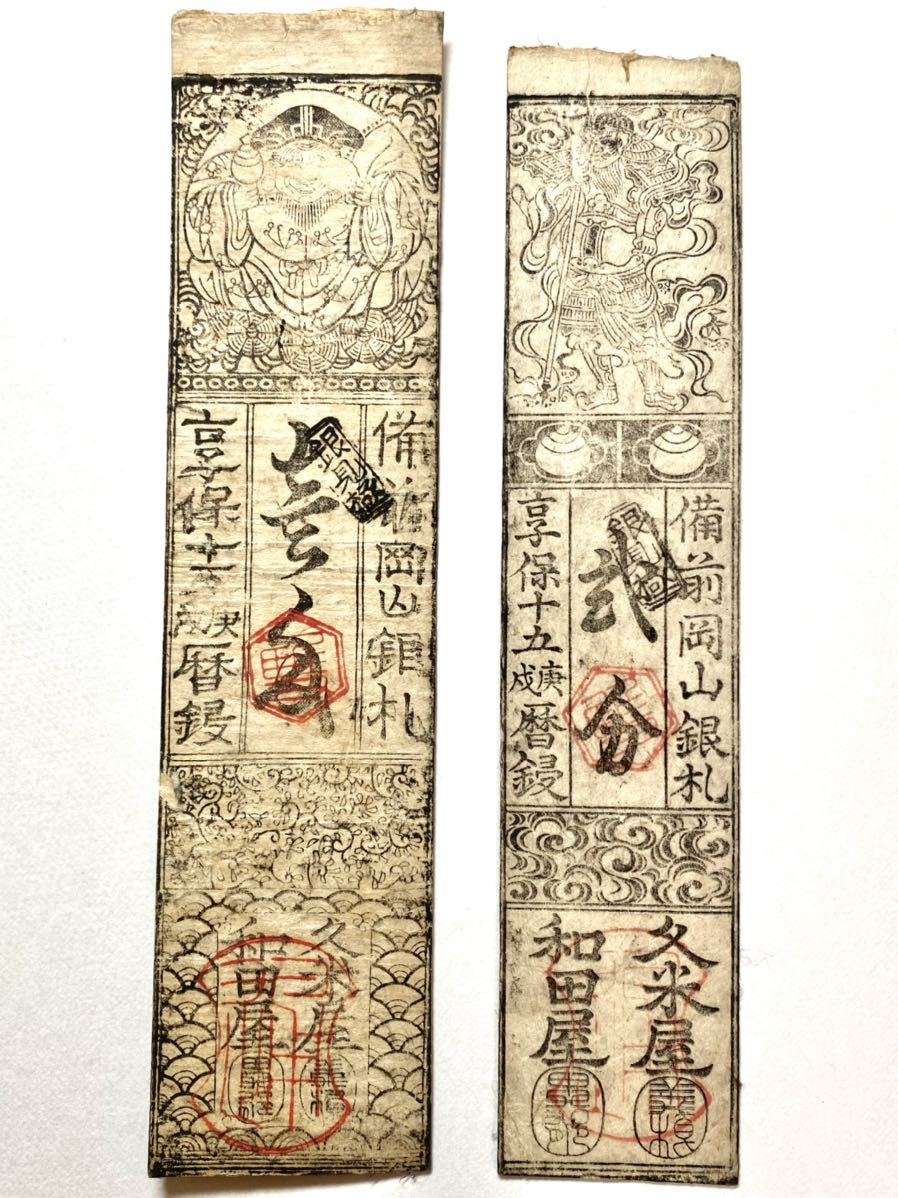 備前岡山銀札
壹匁
享保十五庚戌暦鋟
久米屋
和田屋
備前岡山銀札
貳分
享保十五庚戌暦鋟
久米屋
和田屋